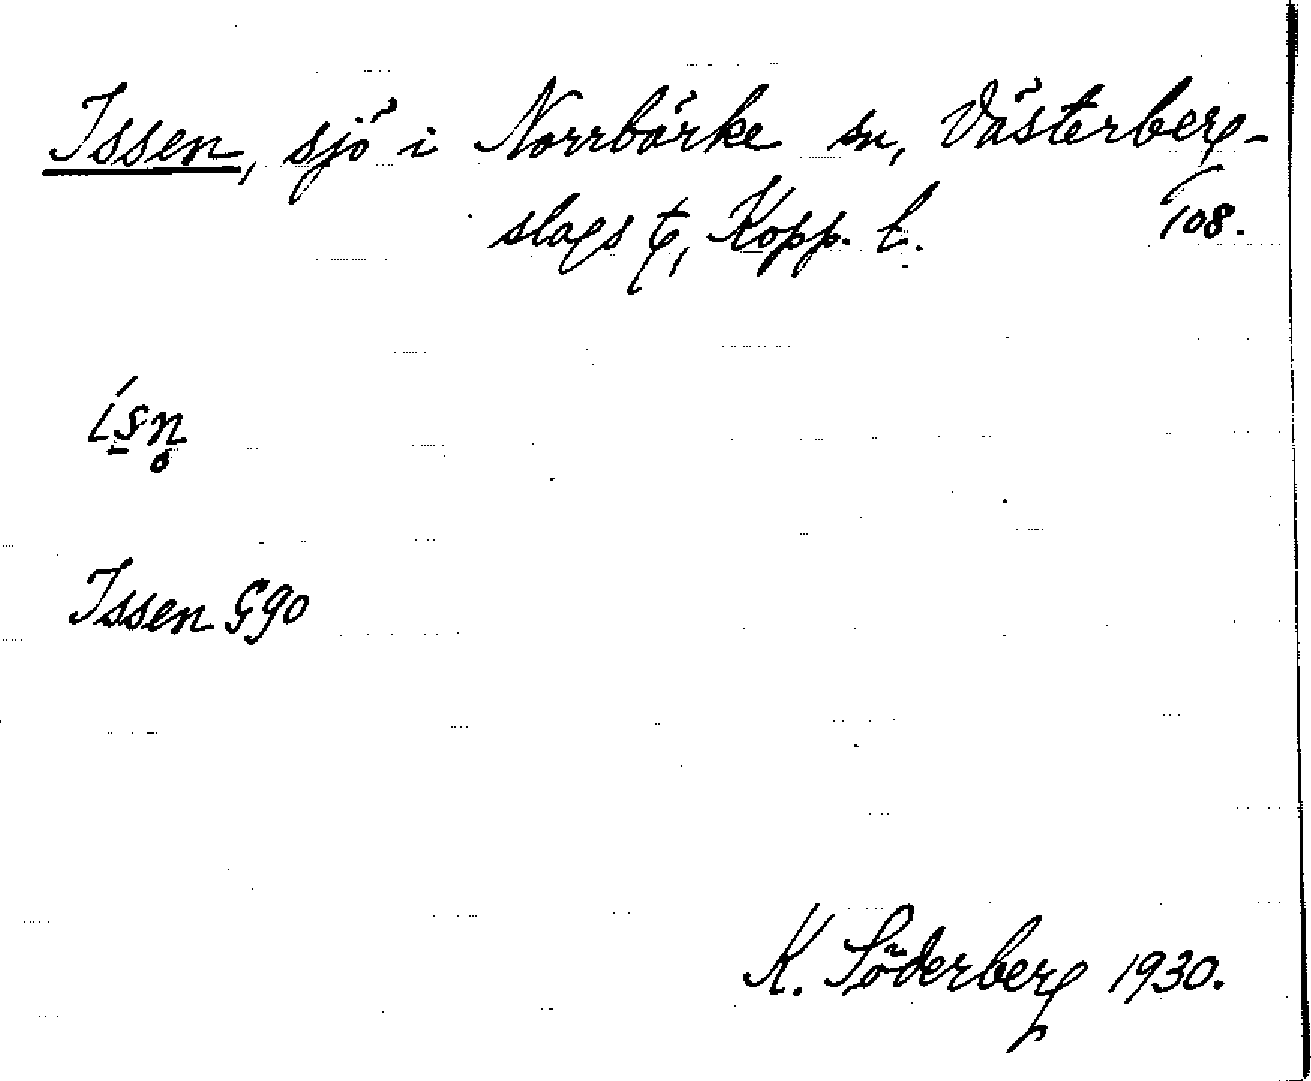 Issen, sjö i Norrbärke sn, Västerberg-
slags t, Kopp. l. 108.
ísn̥
Issen G90
K. Söderberg 1930.